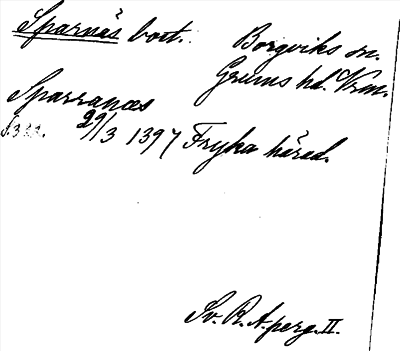 Sparnäs bort. Borgviks sn.
Grums hd. Vrm.
Sparranæs
S.322. 29/3 1397 Fryka härad.
Sv. R. A. perg. II.